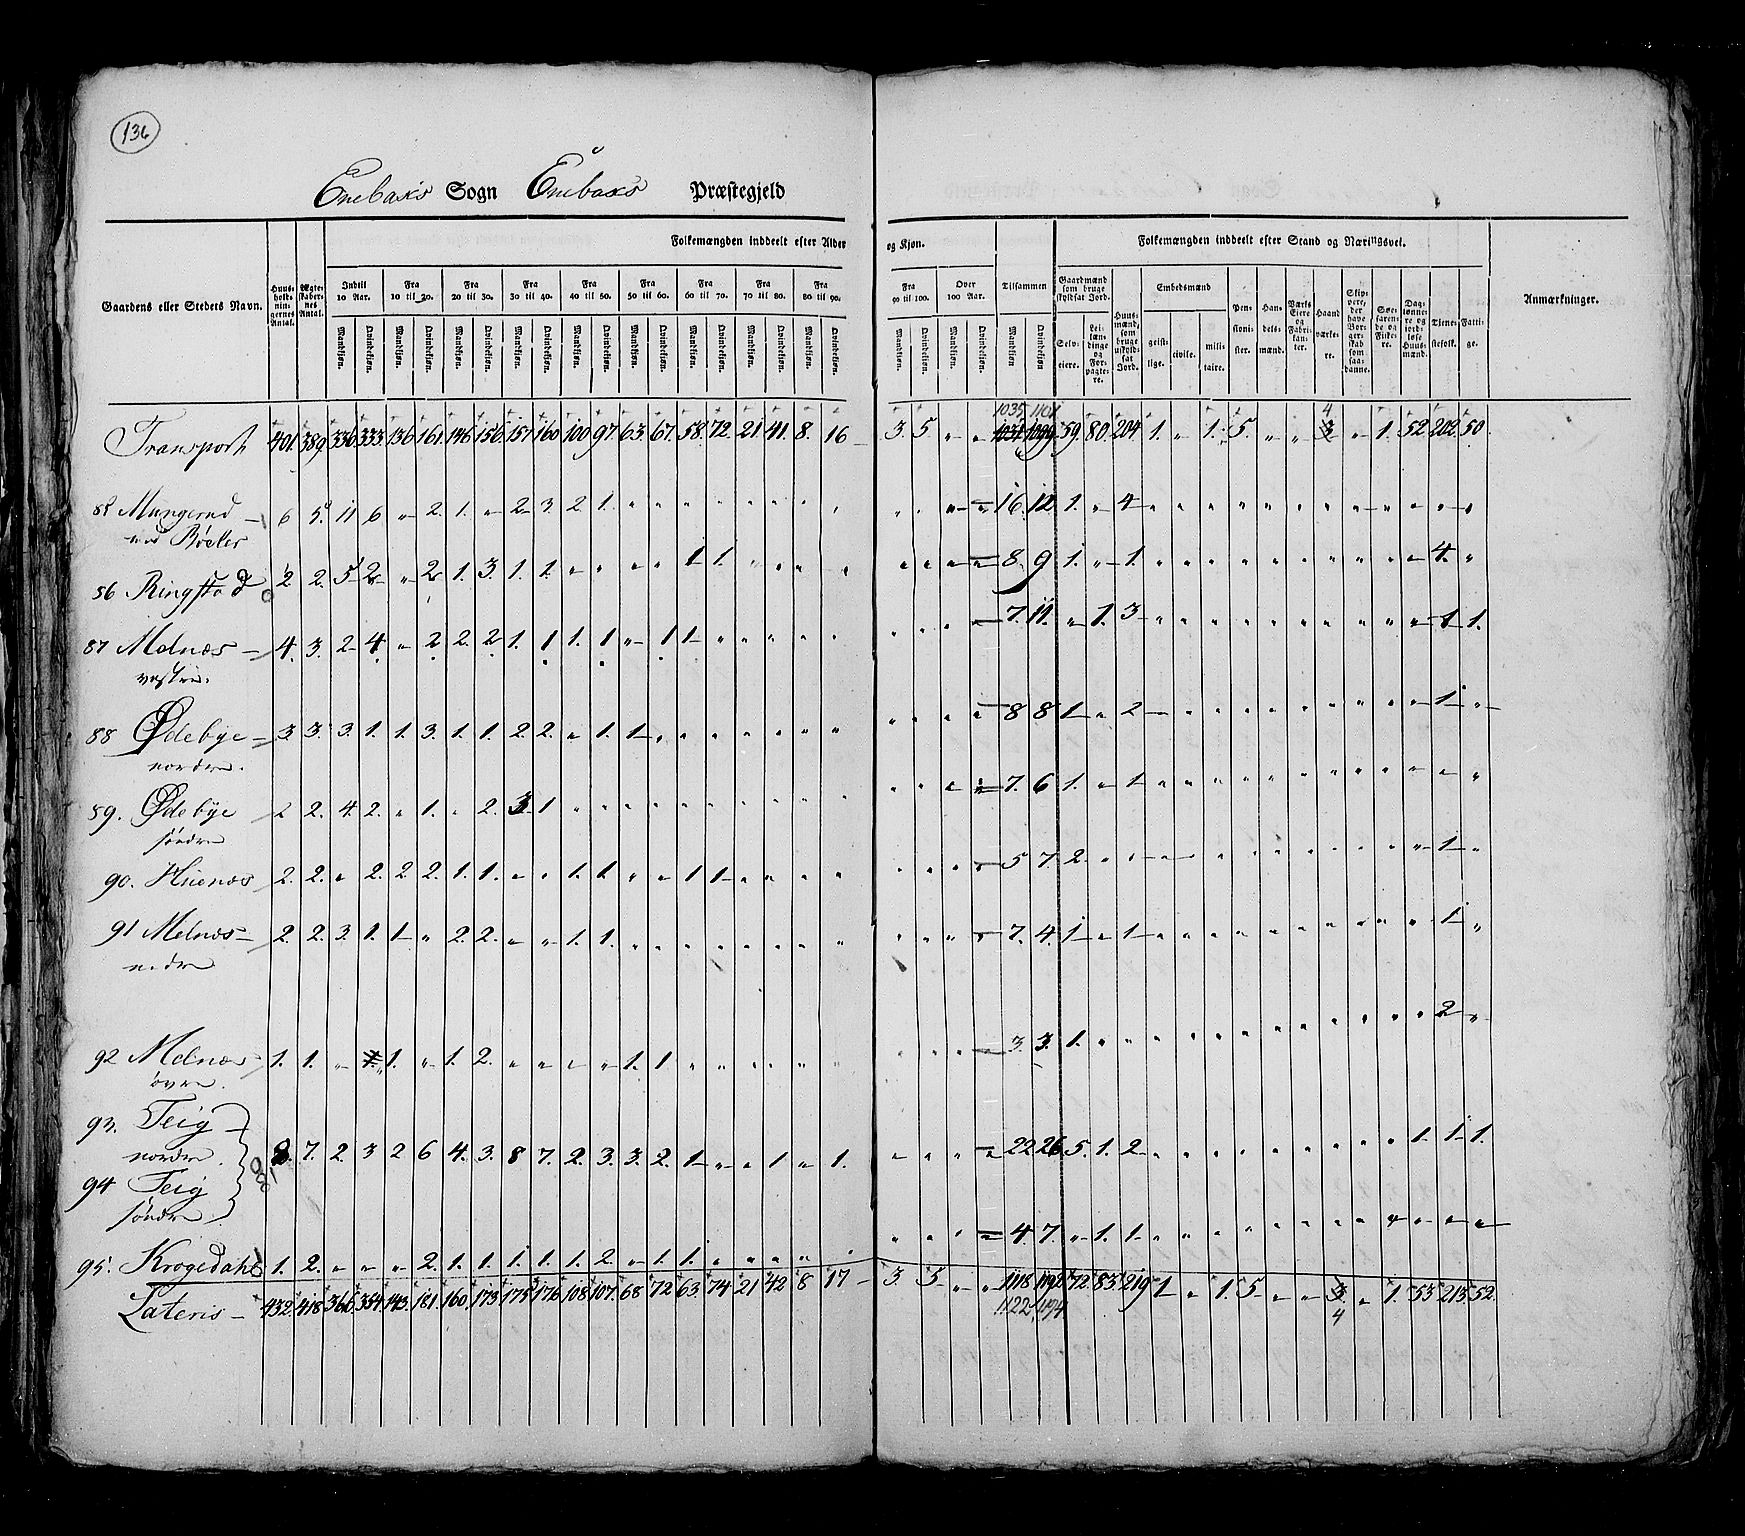 136
Enebaks Sogn Enebaks Præstegjeld
Gaardens eller Stedets Navn.
Huus-holdnin-gernes Antal.
Ægte-skaber-nes Antal.
Folkemængden inddeelt efter Alder og Kjøn.
Indtil 10 Aar. Fra 10 til 20. Fra 20 til 30. Fra 30 til 40. Fra 40 til 50. Fra 50 til 60. Fra 60 til 70. Fra 70 til 80. Fra 80 til 90. Fra 90 til 100. Over 100 Aar. Tilsammen
Mandkjøn. Qvindekjøn. Mandkjøn. Qvindekjøn. Mandkjøn. Qvindekjøn. Mandkjøn. Qvindekjøn. Mandkjøn. Qvindekjøn. Mandkjøn. Qvindekjøn. Mandkjøn. Qvindekjøn. Mandkjøn. Qvindekjøn. Mandkjøn. Qvindekjøn. Mandkjøn. Qvindekjøn. Mandkjøn. Qvindekjøn. Mandkjøn Qvindekjøn.
Folkemængden inddeelt efter Stand og Næringsvei.
Gaardmænd som bruge skyldsat Jord.
Selv-eiere.
Lei-lændinge og For-pagte-re.
Huus-mænd, som bruge uskyld-sat Jord.
Embedsmænd
geist-lige.
civile.
mili-taire.
Pen-sioni-ster.
Han-dels-mænd.
Værks Eiere og Fabri-kan-ter.
Haand værke-re.
Skip-pere, der have Bor-ger-skab som saa-danne.
Søe-faren-de og Fiske-re.
Dag-lønne-re og jord-løse Huus-mænd.
Tjene-stefolk.
Fatti-ge.
Anmærkninger.
1035 1101 4
Transport 401. 389. 336. 333. 136. 161. 146. 156. 157. 160. 100. 97. 63. 67. 58. 72. 21. 41. 8. 16 3. 5. " " 1031 1099 59. 80. 204 1. " 1. 5. " " 3 " 1. 52. 202. 50.
85 Mangerud 6 5. 11 6 " 2. 1. " 2 3. 2 1. 16. 12. 1. " 4
Bøeler
86 Ringstad 2 2. 5 2 " 2 1. 3. 1. 1. " " " " 1 1. 8. 9 1. " 1. 4.
87 Melnæs 4. 3. 2 4 " 2 2. 2 1. 1 1. 1 " 1 1 7. 11. " 1. 3 1 1.
vestre.
88 Ødebye 3. 3. 3. 1. 1. 3. 1. 1. 2 2. " 1. 1. 8 8 1 " 2 1
nordre.
89. Ødebye 2 2. 4. 2. " 1. " 2. 3. 1 7. 6 1. " 1
søndre
90. Huenæs 2. 2. " 2. 2 2. 1. 1. " " 1. 1. " " 1 1 5 7. 2. 1
91 Melnæs 2. 2. 3. 1. 1 " 2. 2. " " 1. 1. 7. 4. 1 " 1 1
nedre
92 Melnæs 1. 1. " 1 1. " 1. 2. " " " " 1. 1 3. 3. 1. 2
øvre.
93. Teig
nordre. 8. 7. 2. 3 2 6 4. 3. 8 7. 2. 3. 3. 2. 1 " " 1 " 1. 22 26 5. 1. 2 1. 1 1.
94 Teig
søndre
95. Krogedahl 1. 2. " " " 2. 1. 1. 1. 1. 1. 2. " 1. 1. 4. 7. " 1. 1.
Lateris 432. 418. 366. 354. 143. 181. 160. 173. 175. 176. 108. 107. 68 72 63. 74 21 42 8 17 3 5 " " 1118 1192 72. 83. 219 1 " 1. 5. " " 3 " 1. 53 213. 52.
1122 1194 4